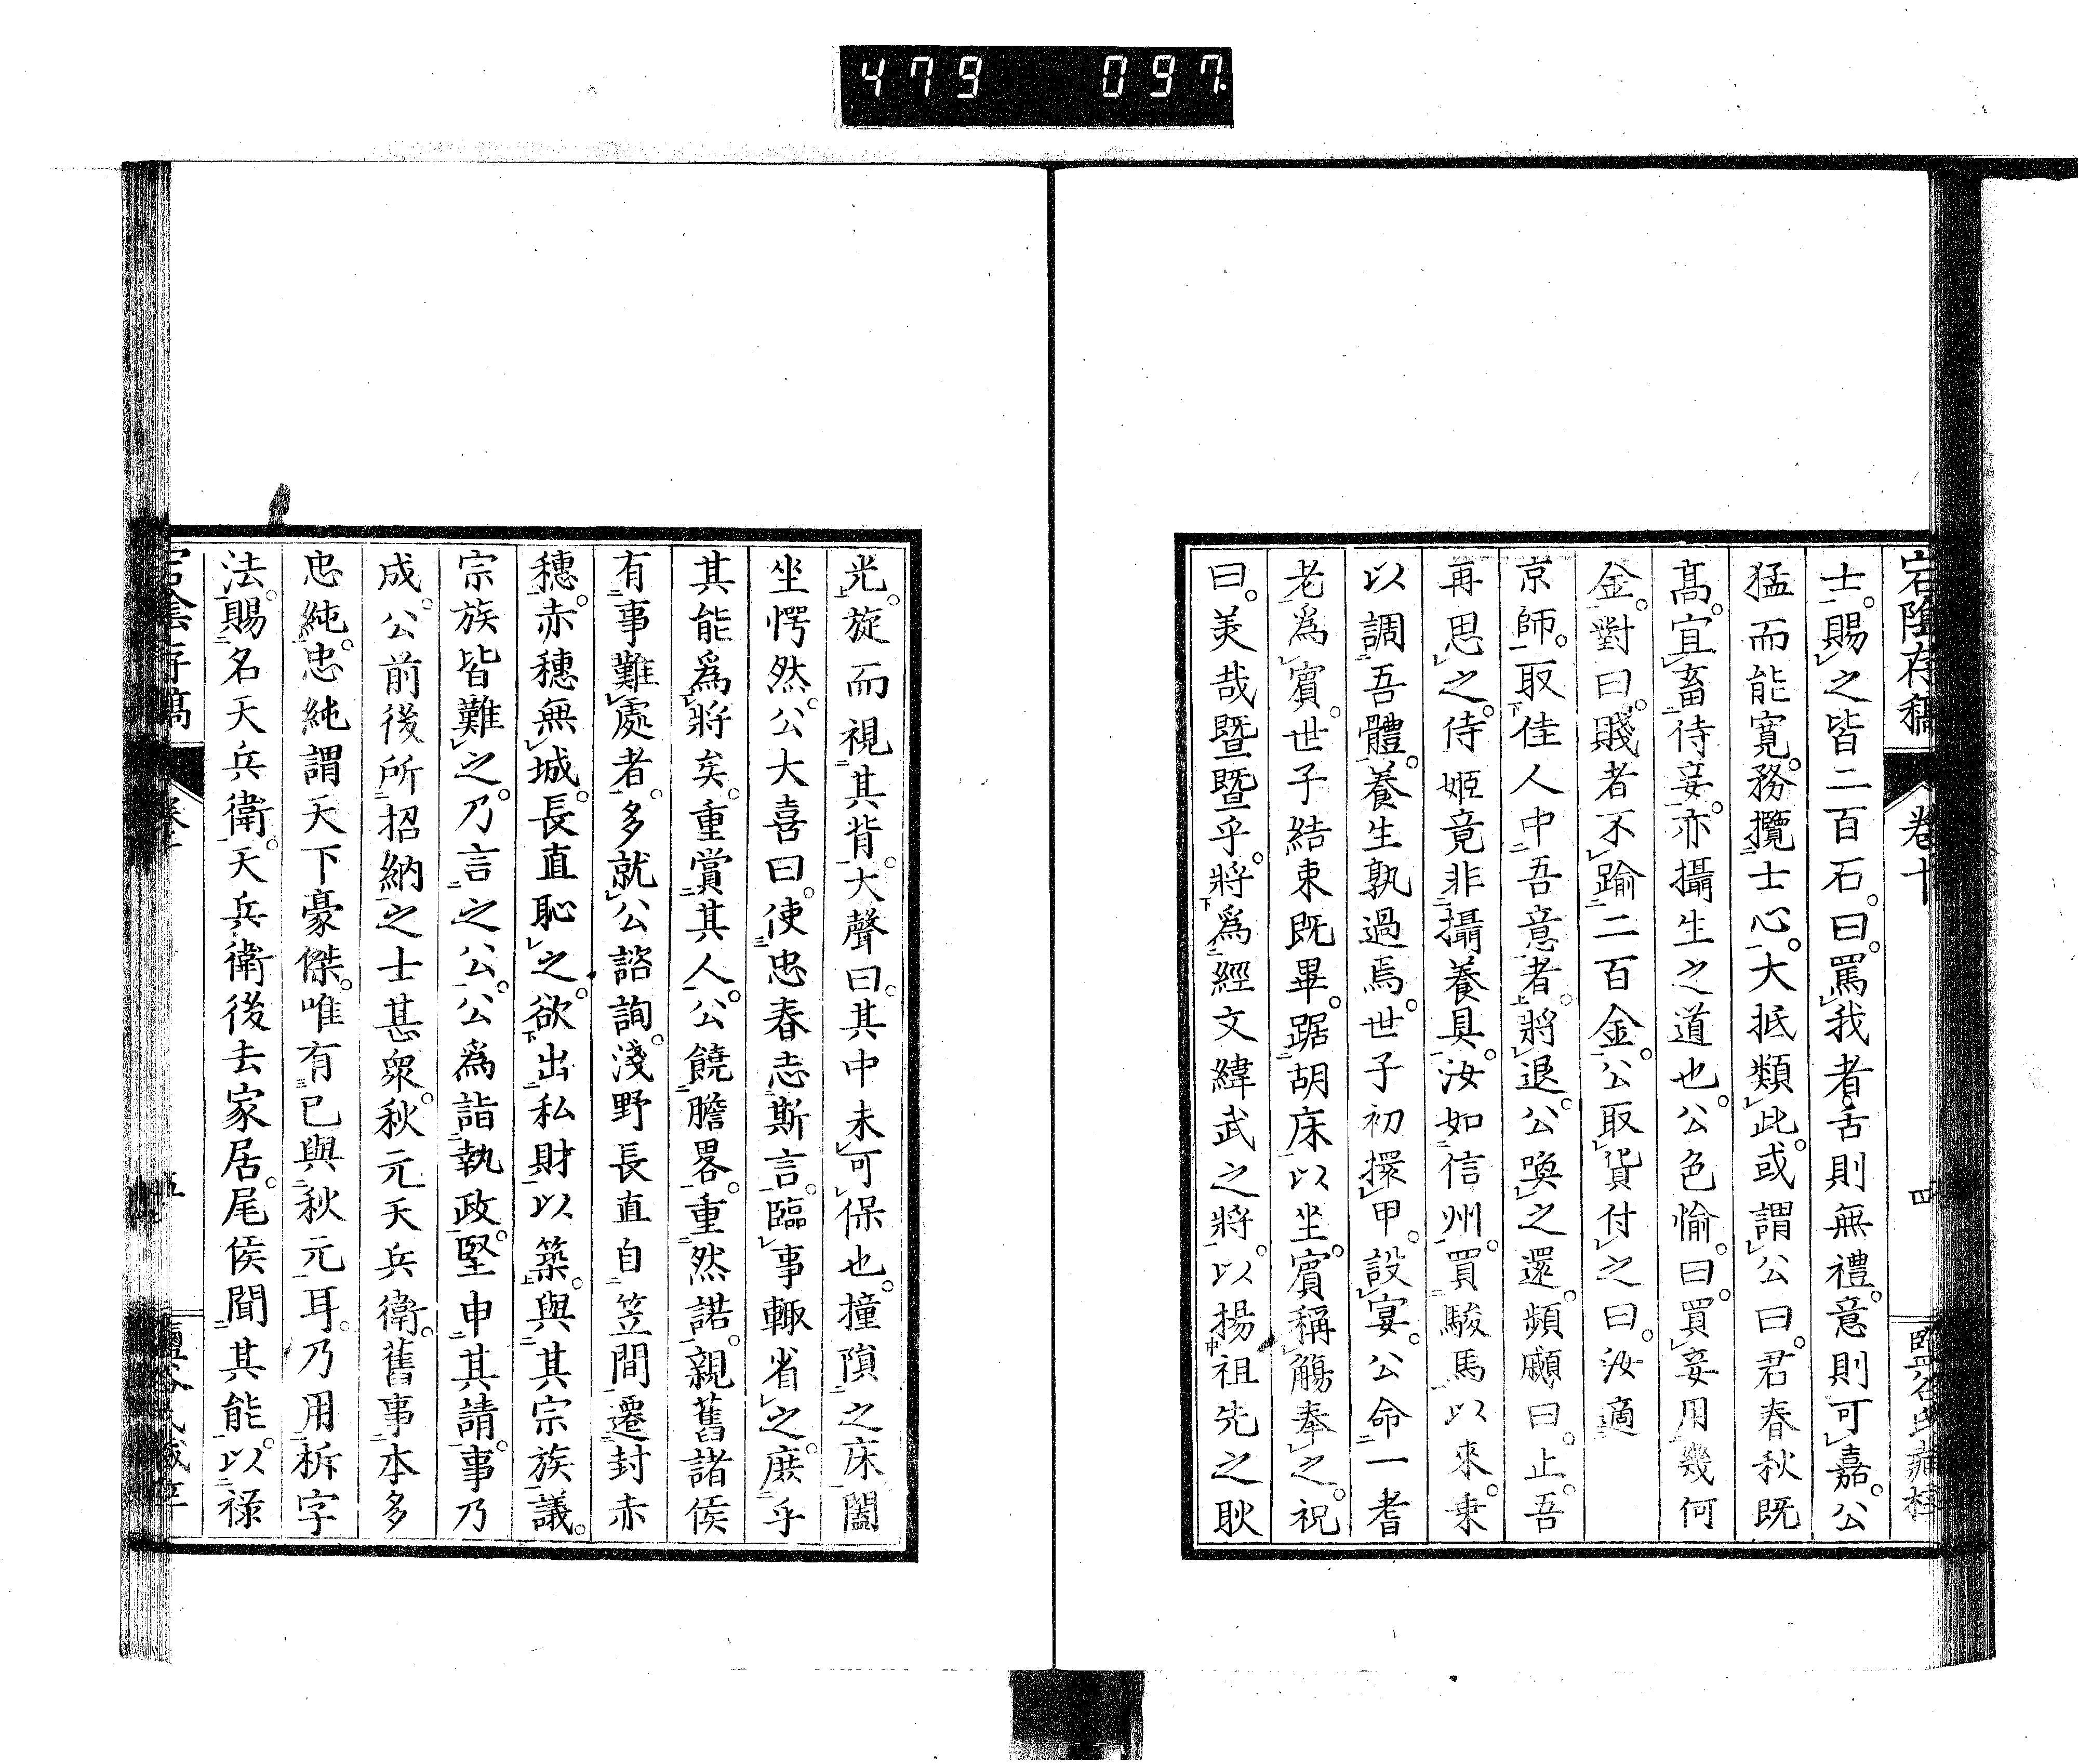 479 097.
宕陰存稿 卷十 四
士。賜之皆二百石。曰。罵我者。舌則無禮。意則可嘉。公
猛而能寬。務攬士心。大抵類此。或謂公曰。君春秋既
髙。宜畜侍妾。亦攝生之道也。公色愉。曰。買妾用幾何
金。對曰。賤者不踰二百金。公取貨付之曰。汝適
京師。取佳人中吾意者。將退。公喚之還。頻顣曰。止。吾
再思之。侍姬竟非攝養具。汝如信州。買駿馬以來。乘
以調吾體。養生孰過焉。世子初擐甲。設宴。公命一耆
老爲賓。世子結束既畢。踞胡床以坐。賓稱觴奉之。祝
曰。美哉曁曁乎。將爲經文緯武之將。以揚祖先之耿
光。旋而視其背。大聲曰。其中未可保也。撞隕之床。闔
坐愕然。公大喜曰。使忠春志斯言。臨事輙省之。庶乎
其能爲將矣。重賞其人。公饒膽畧。重然諾。親舊諸侯
有事難處者。多就公諮詢。淺野長直自笠間遷封赤
穗。赤穗無城。長直恥之。欲出私財以築。與其宗族議。
宗族皆難之。乃言之公。公爲詣執政。堅申其請。事乃
成。公前後所招納之士甚衆。秋元天兵衛。舊事本多
忠純。忠純謂天下豪傑。唯有已與秋元耳。乃用析字
法。賜名天兵衛。天兵衛後去家居。尾侯聞其能。以祿